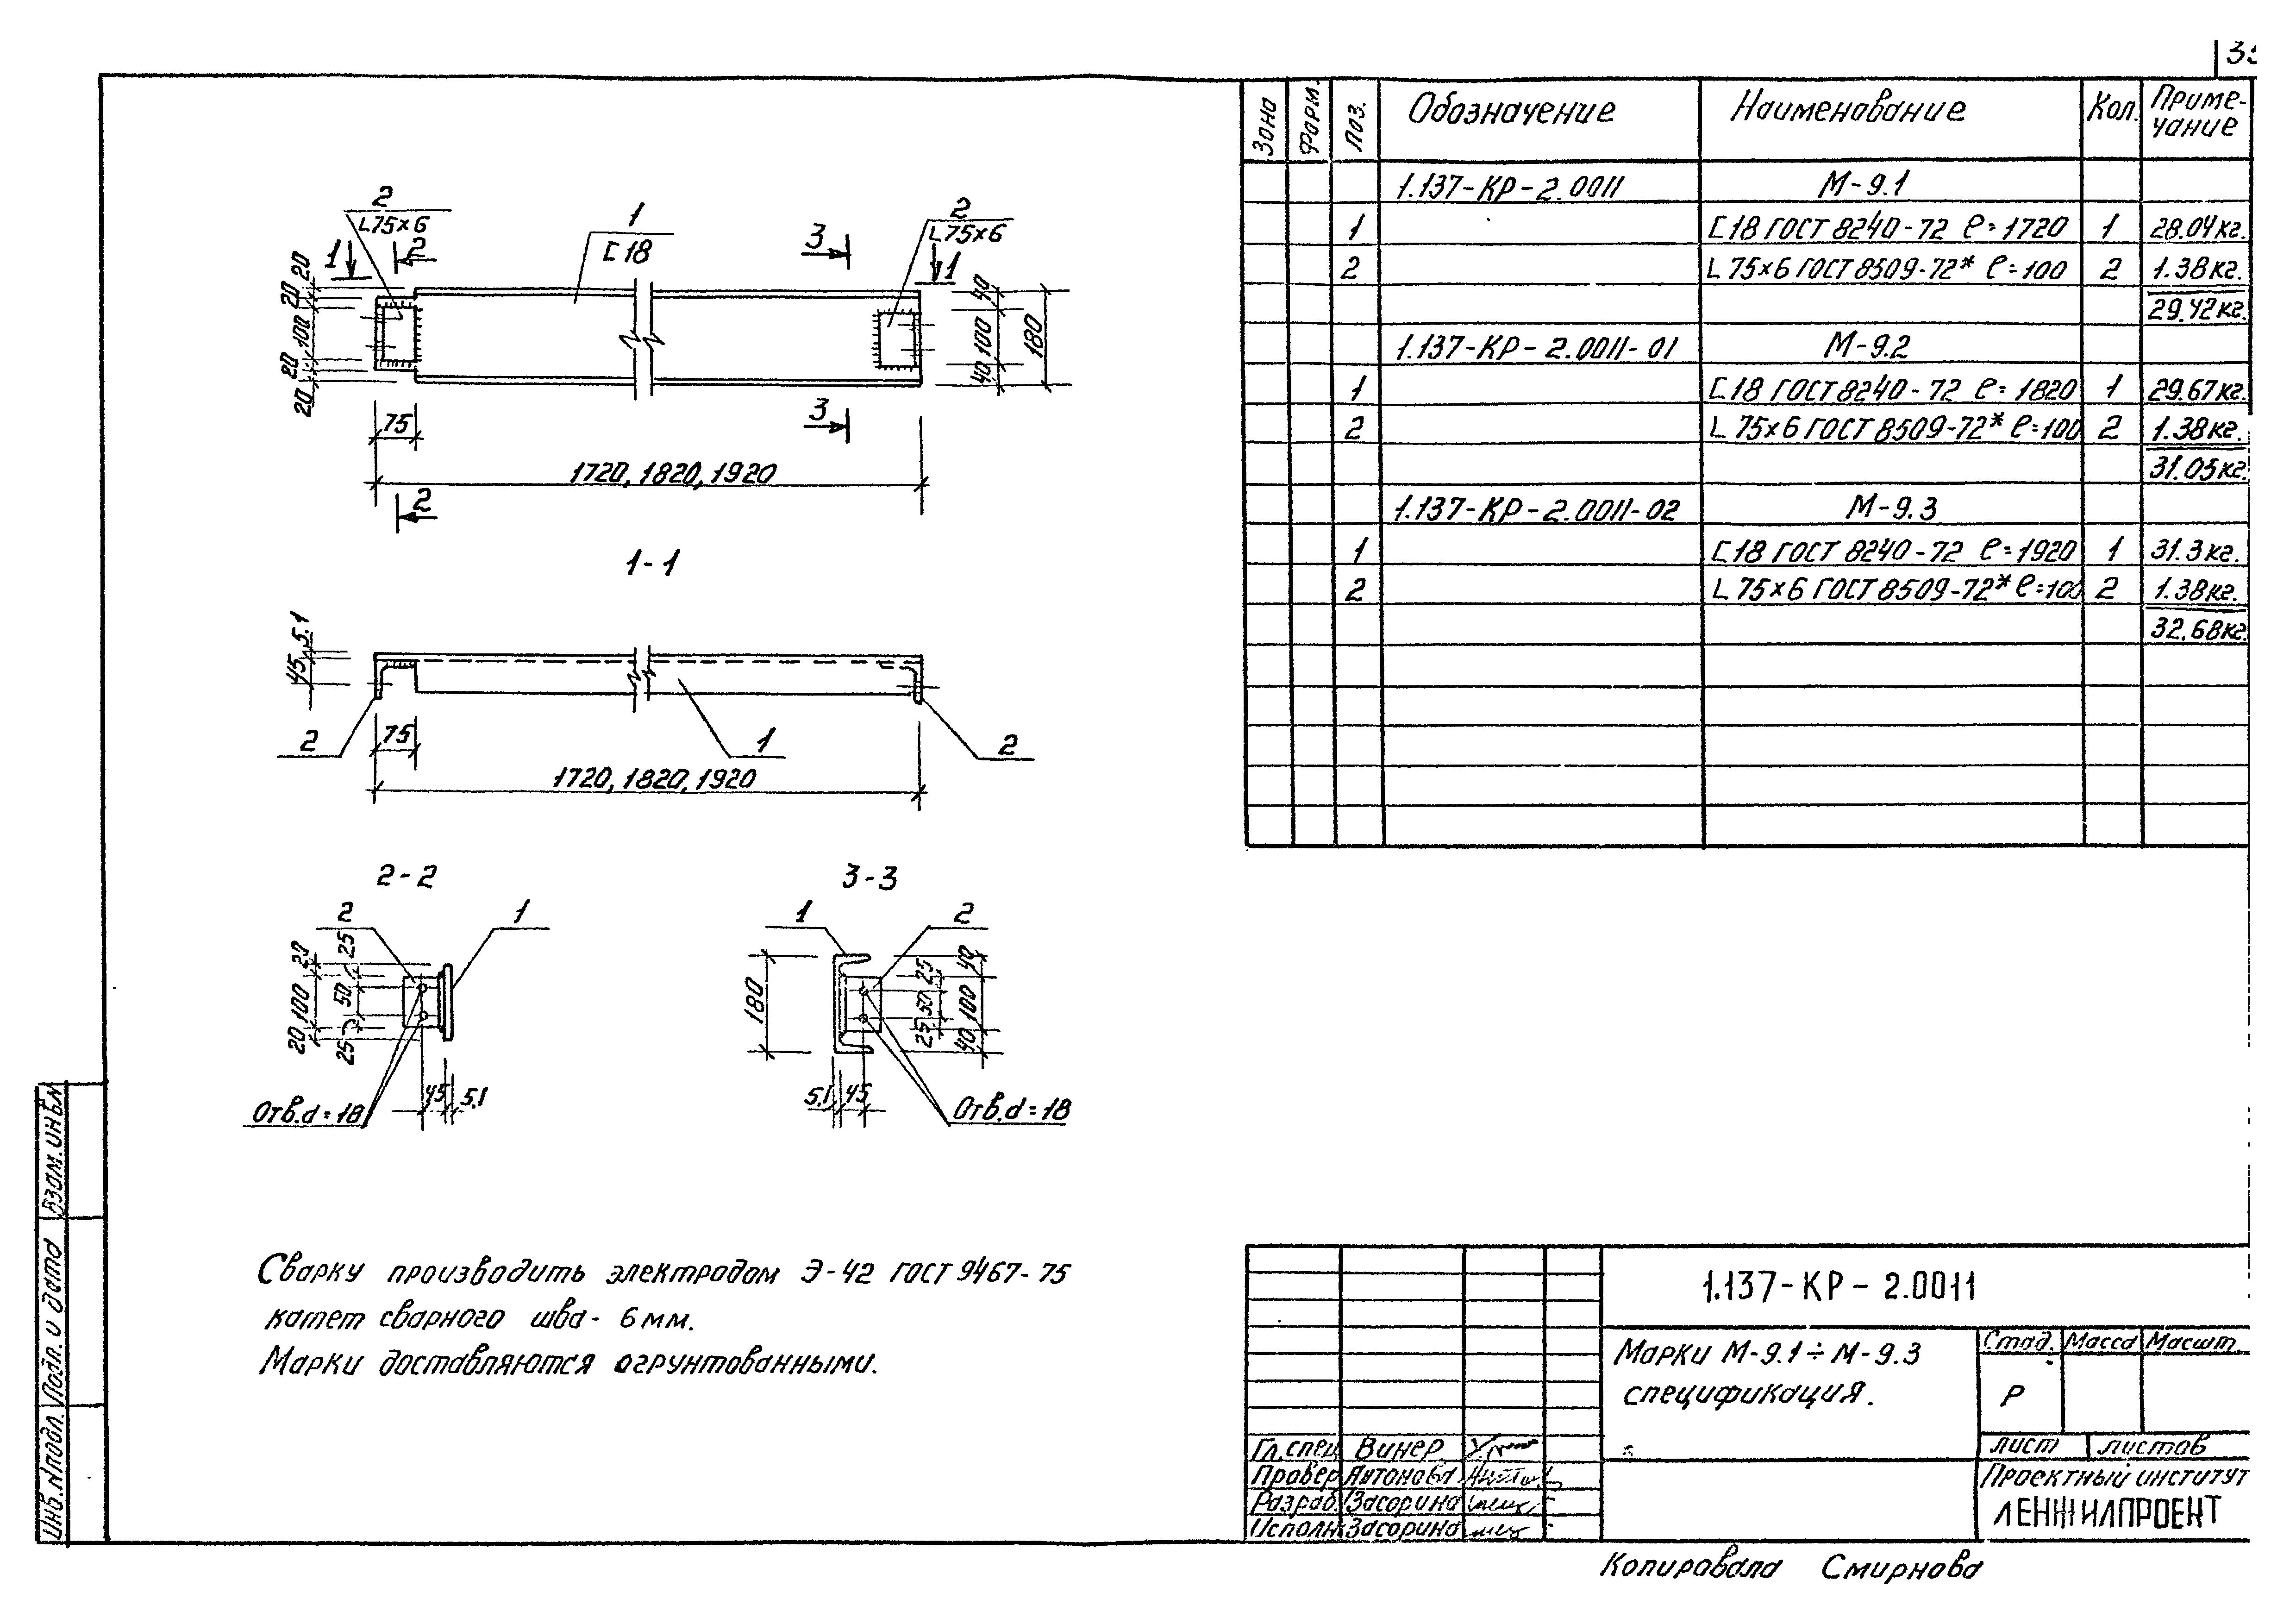 Зона Форм. Поз. Обозначение Наименование Кол. Приме-
чание
1.137-КР-2.0011 М-9.1
1 [18 ГОСТ 8240-72 ℓ=1720 1 28.04кг.
2 L 75×6 ГОСТ 8509-72* ℓ=100 2 1.38кг.
29.42кг.
1.137-КР-2.0011-01 М-9.2
1 [18 ГОСТ 8240-72 ℓ=1820 1 29.67кг.
2 L 75×6 ГОСТ 8509-72* ℓ=100 2 1.38кг.
31.05кг.
1.137-КР-2.0011-02 М-9.3
1 [18 ГОСТ 8240-72 ℓ=1920 1 31.3кг.
2 L 75×6 ГОСТ 8509-72* ℓ=100 2 1.38кг.
32.68кг.
2
L75×6
1
[18
2
L75×6
1
2
3
1
20
20
100
20
20
40
100
40
180
75
3
1720, 1820, 1920
2
1-1
5.1
45
2
75
1
2
1720, 1820, 1920
2-2
2
1
20
100
20
25
50
25
45
5.1
Отв.d=18
3-3
1
2
180
25
50
25
40
100
40
5.1
45
Отв.d=18
Сварку производить электродом Э-42 ГОСТ 9467-75
катет сварного шва- 6мм.
Марки доставляются огрунтованными.
Взам.инв.N
Подп. и дата
Инв.Nподл.
1.137-КР-2.0011
Марки М-9.1÷М-9.3
спецификация.
Стад. Масса Масшт.
Р
лист листов
Проектный институт
ЛЕНЖИЛПРОЕКТ
Гл.спец. Винер
Провер. Антонова
Разраб. Засорина
Исполн. Засорина
Копировала Смирнова